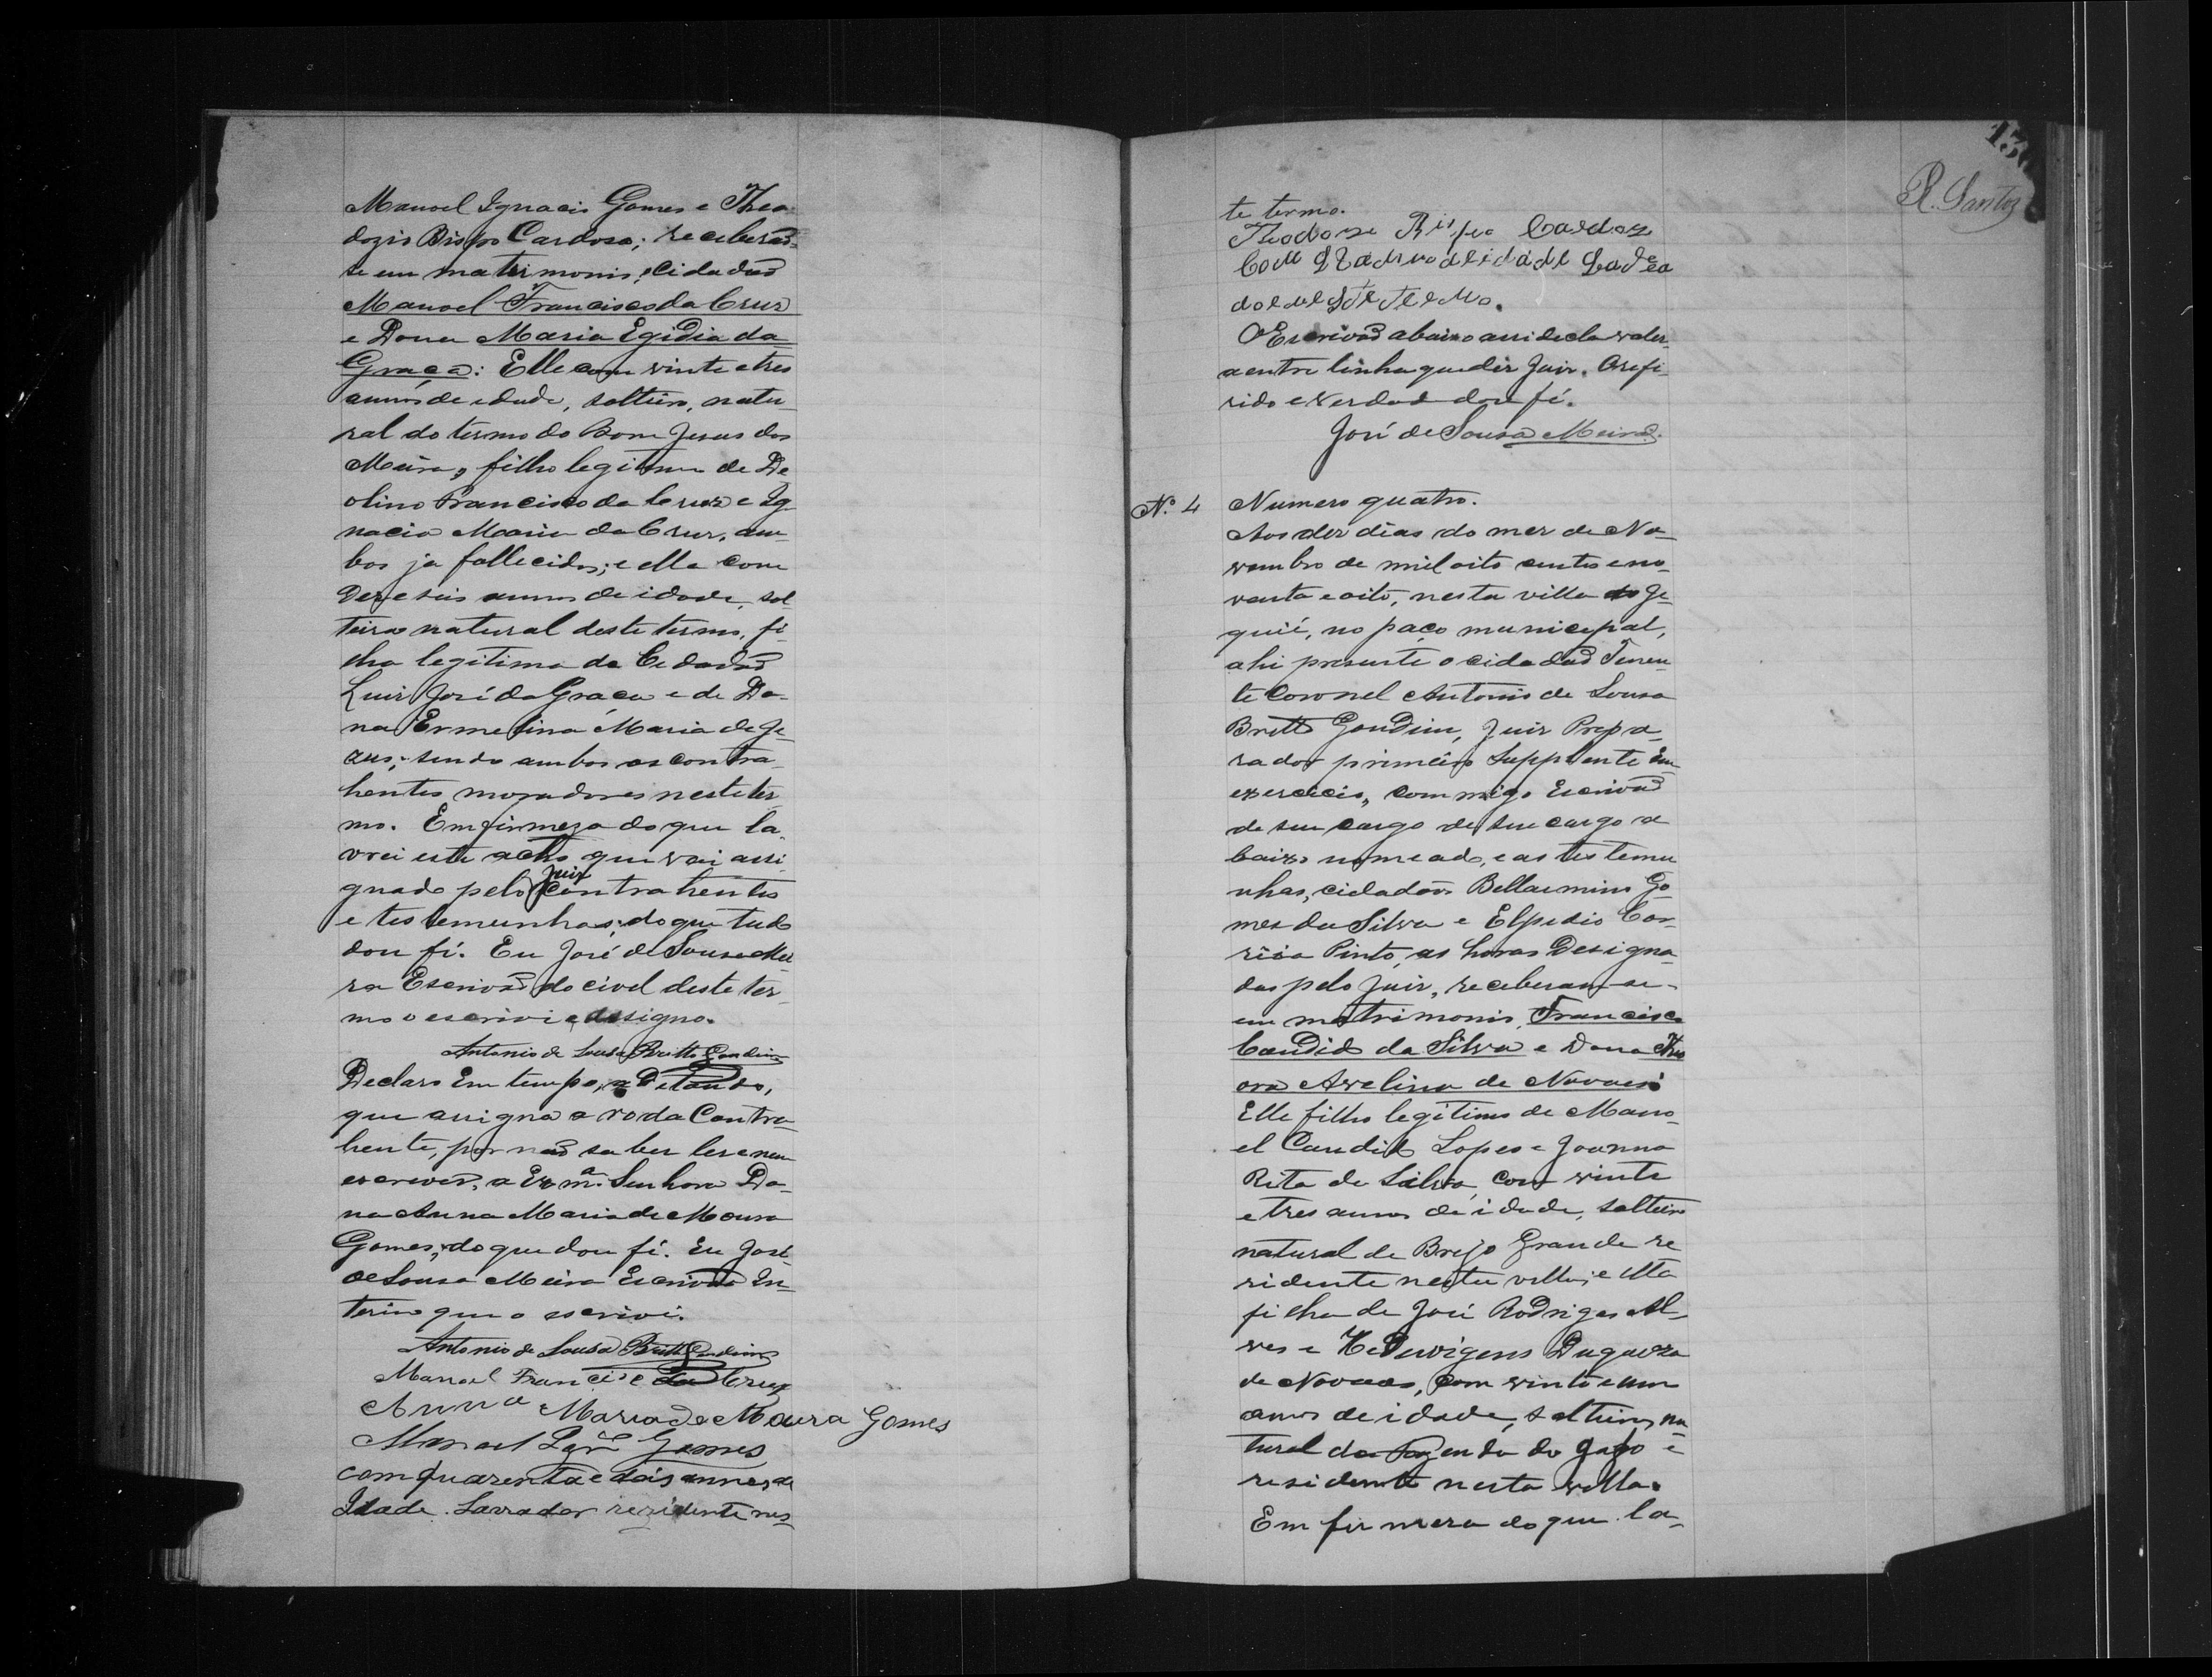 Manoel Ignacio Gomes e Theo-
dozio Bispo Cardoso; receberão-
se em matrimonio, o Cidadão
Manoel Francisco da Cruz
e Dona Maria Egidia da
Graça: Elle com vinte e tres
annos de edade, solteiro, natu-
ral do termo do Bom Jesus dos
Meiras, filho legitimo de De
olino Francisco da Cruz e Ig-
nacia Maria da Cruz, am-
bos ja fallecidos; e ella com
Dezeseis annos de idade, sol
teira natural deste termo, fi-
lha legitima do Cidadão
Luiz José da Graça e de Do-
na Ermelina Maria de Je-
zus; sendo ambos os contra-
hentes moradores neste ter-
mo. Em firmeza do que la-
vrei este acto que vai assi-
gnado pelo Juiz Contrahentes
e testemunhas; do que tudo
dou fé. Eu José de Sousa Mei
ra Escrivão do civel deste ter-
mo o escrivi e assigno.
Antonio de Sousa Britto Gondim
Declaro Em tempo,
que assigna a rogo da Contra-
hente, por não saber ler e nem
escrever, a Exmª. Senhora Do-
na Anna Maria de Moura
Gomes, do que dou fé. Eu José
de Sousa Meira Escrivão In-
terino que o escrivi.
Antonio de Sousa Britto Gondim
Manoel Francisco da Cruz
Anna Maria de Moura Gomes
Manoel Ignº Gomes
com quarenta e dois annos de
Idade. Lavrador rezidente nes-
130
R. Santos
te termo.
Theodoze Bispo Cardozo
O Escrivão abaixo assi declara valer
a entre linha que diz Juiz. O refe-
rido e verdad dou fé.
José de Sousa Meira.
Nº. 4 Numero quatro.
Aos dez dias do mez de No-
vembro de mil oito centos e no-
venta e oito, nesta villa de Je-
quié, no paço municipal,
ahi presente o cidadão Tenen-
te Coronel Antonio de Sousa
Britto Gondim, Juiz Prepa-
rador primeiro Supplente Em
exercicio, commigo Escrivão
de seu cargo de seu cargo a
baixo nomeado, e as testemu
nhas, cidadãos Bellarmino Go-
mes da Silva e Elpidio Cor-
reia Pinto, as horas Designa-
das pelo Juiz, receberam-se-
em matrimonio, Francisco
Candido da Silva e Dona The
ora Avelina de Novaes:
Elle filho legitimo de Mano-
el Candido Lopes e Joanna
Rita da Silva, com vinte
e tres annos de idade, solteiro
natural de Brejo Grande re
zidente nesta villa; e ella
filha de José Rodrigues Al-
ves e Heduvigens
de Novaes, com vinte e um
annos de idade, solteira, na
tural da Fazenda do Gado e
residente nesta villa.
Em firmeza do que la-